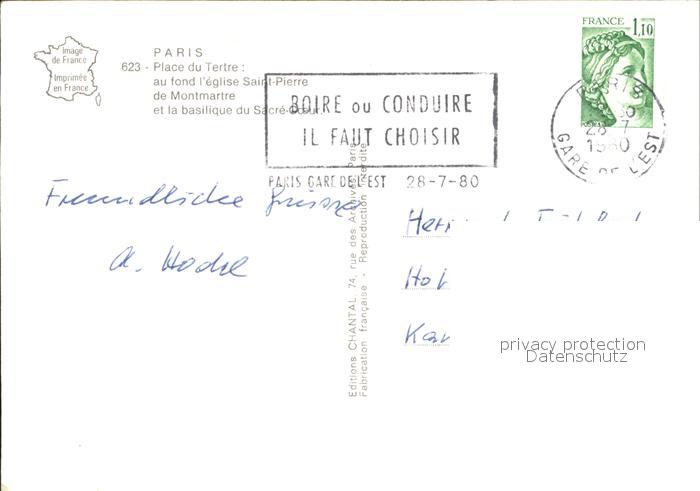 Image
de France
Imprimée
en France
PARIS
623 - Place du Tertre :
au fond l'église Saint-Pierre
de Montmartre
et la basilique du Sacré-Cœur.
FRANCE
1,10
BOIRE ou CONDUIRE
IL FAUT CHOISIR
PARIS GARE DE L'EST 28-7-80
PARIS
28-7
1980
GARE DE L'EST
Freundliche Grüsse
Editions CHANTAL, 74, rue des Archives, Paris
Fabrication française - Reproduction interdite
Herr
Hof
Kar
privacy protection
Datenschutz